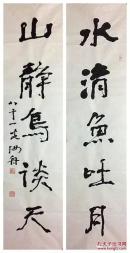 水清魚吐月
山靜鳥談天
八十一叟